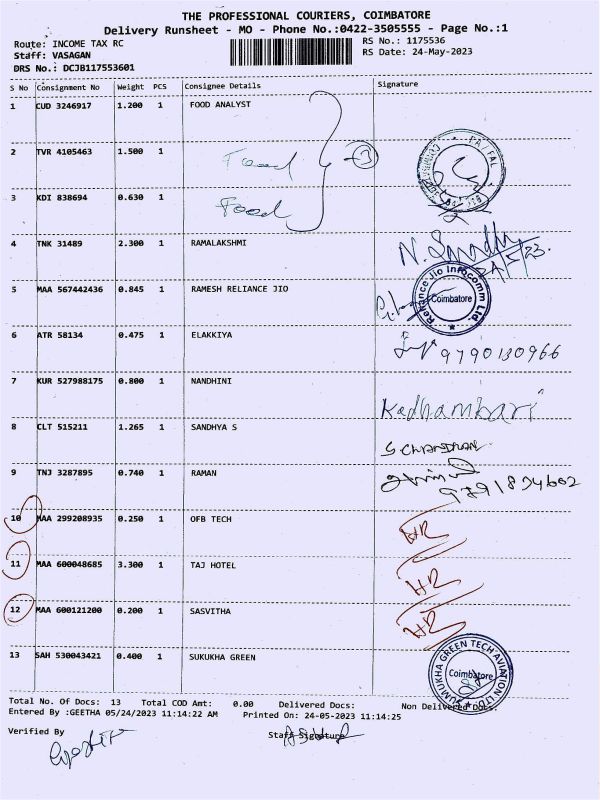 THE PROFESSIONAL COURIERS, COIMBATORE
Delivery Runsheet - MO - Phone No.:0422-3505555 - Page No.:1
Route: INCOME TAX RC RS No.: 1175536
Staff: VASAGAN RS Date: 24-May-2023
DRS No.: DCJB117553601
S No Consignment No Weight PCS Consignee Details Signature
1 CUD 3246917 1.200 1 FOOD ANALYST
2 TVR 4105463 1.500 1 Food 3
3 KDI 838694 0.630 1 Food
4 TNK 31489 2.300 1 RAMALAKSHMI
5 MAA 567442436 0.845 1 RAMESH RELIANCE JIO Reliance Jio Infocomm Ltd. Coimbatore
6 ATR 58134 0.475 1 ELAKKIYA 9790130966
7 KUR 527988175 0.800 1 NANDHINI Kadhambari
8 CLT 515211 1.265 1 SANDHYA S S CHANDRAN
9 TNJ 3287895 0.740 1 RAMAN
10 MAA 299208935 0.250 1 OFB TECH
11 MAA 600048685 3.300 1 TAJ HOTEL
12 MAA 600121200 0.200 1 SASVITHA
13 SAH 530043421 0.400 1 SUKUKHA GREEN SUMUKHA GREEN TECH AVIATION LTD. Coimbatore
Total No. Of Docs: 13 Total COD Amt: 0.00 Delivered Docs: Non Delivered Docs:
Entered By :GEETHA 05/24/2023 11:14:22 AM Printed On: 24-05-2023 11:14:25
Verified By Staff Signature